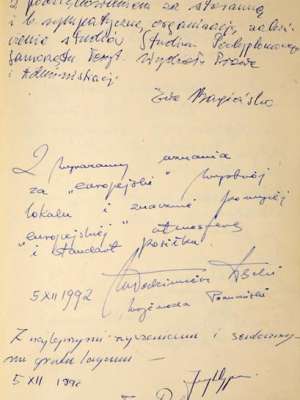 Z podziękowaniem za staranną
i b. sympatyczną organizację, zakoń-
czenia studiów Studium Podyplomowego
Samorządu Teryt. Wydziału Prawa
i Administracji
Ewa
Z wyrazami uznania
za "europejski" wystrój
lokalu i znacznie powyżej
"europejskiej" atmosferę
i standart posiłku.
Włodzimierz
Wojewoda Poznański
5 XII 1992
Z najlepszymi życzeniami i serdeczny-
mi gratulacjami -
5 XII 1992